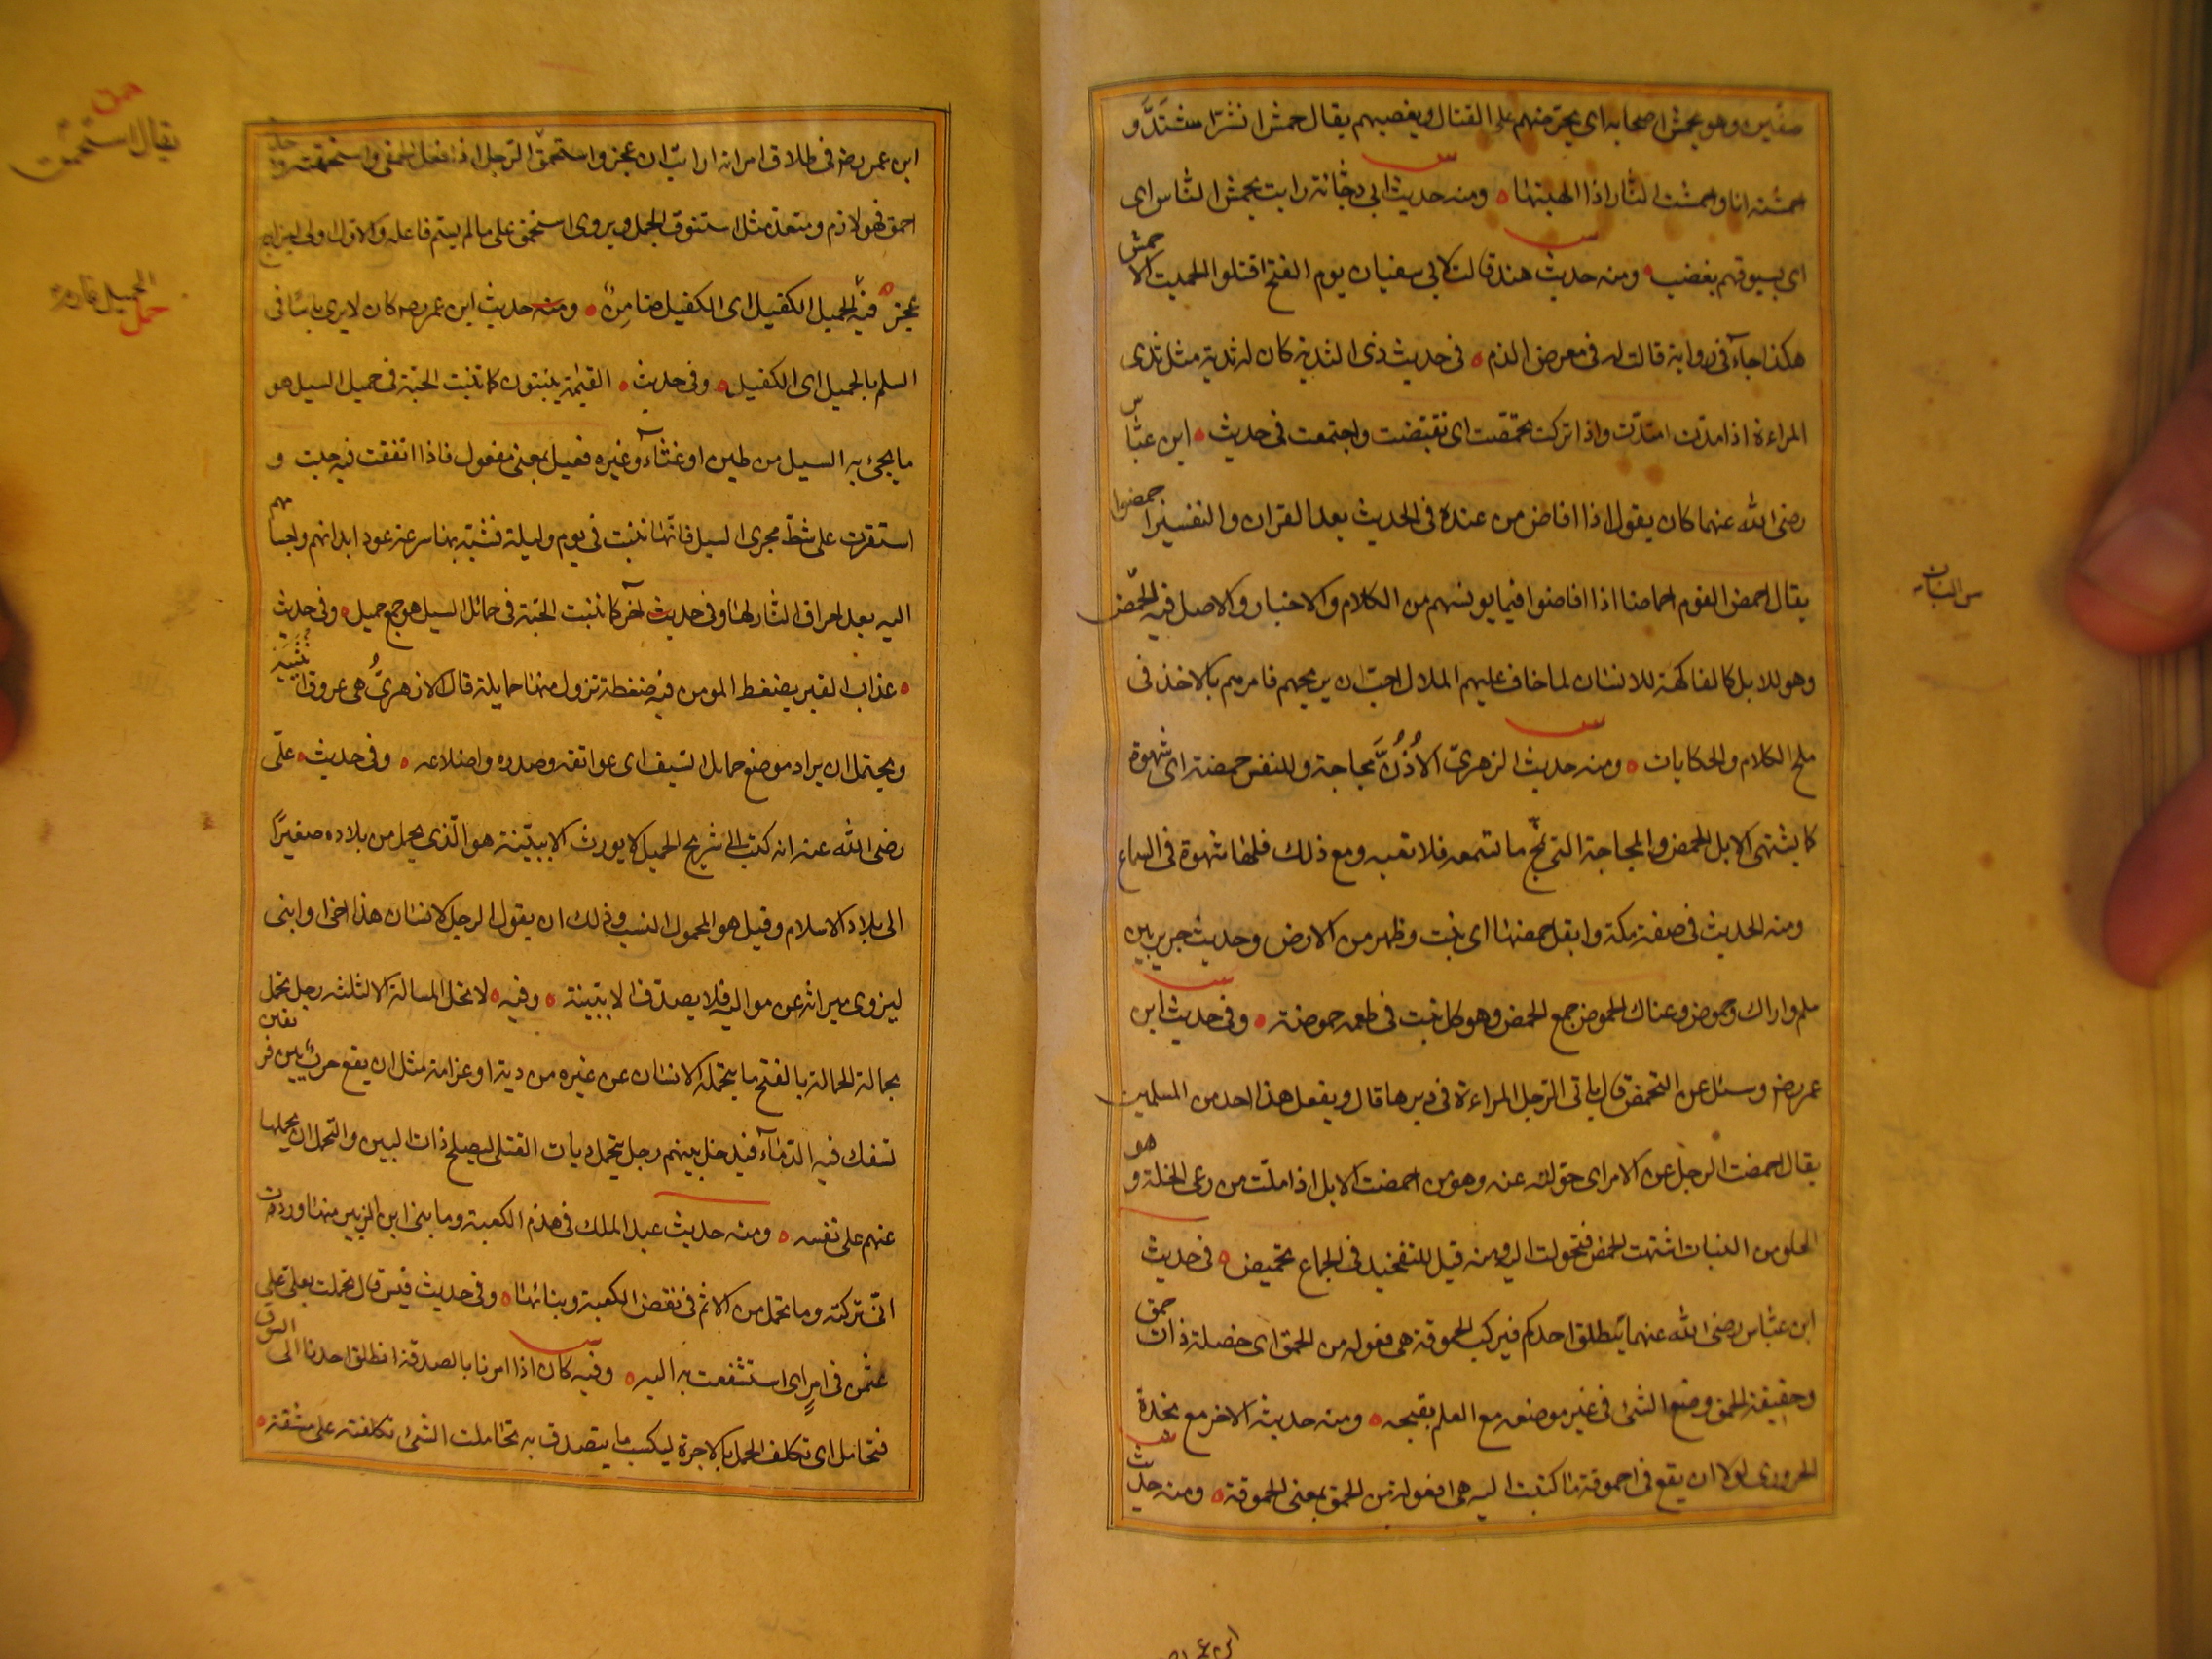 صفين وهو يحمش اصحابه اى يحرضهم على القتال ويغضبهم يقال حمش الشر اشتد و
احمشته انا واحمشت النار اذا الهبتها ومنه حديث ابى دجانة رايت يحمش الناس اى
اى يسوقهم بغضب ومنه حديث هند قالت لابى سفيان يوم الفتح اقتلوا الحميت الاحمش
هكذا جاء فى رواية قالت له فى معرض الذم فى حديث ذى الثدية كان له ثدية مثل ثدى
المراءة اذا مدت امتدت واذا تركت تحمصت اى تقبضت واجتمعت فى حديث ابن عباس
رضى الله عنهما كان يقول اذا افاض من عنده فى الحديث بعد القران والتفسير احمضوا
يقال احمض القوم احماضا اذا افاضوا فيما يونسهم من الكلام والاخبار والاصل فيه الحمض
من النبات
وهو للابل كالفاكهة للانسان لما خاف عليهم الملال احب ان يريحهم فامرهم بالاخذ فى
ملح الكلام والحكايات ومنه حديث الزهرى الاذن مجاجة وللنفس حمضة اى شهوة
كما يشتهى الابل الحمض والمجاجة التى تمج ما تسمعه فلا تعيه ومع ذلك فلها شهوة فى السماع
ومنه الحديث فى صفة مكة وابقل حمضها اى نبت وظهر من الارض وحديث جرير بين
سلم واراك وحموض وعناك الحموض جمع الحمض وهو كل نبت فى طعمه حموضة وفى حديث ابن
عمر رض وسئل عن التحميض قال ياتى الرجل المراءة فى دبرها قال ويفعل هذا احد من المسلمين
يقال احمضت الرجل عن الامر اى حولته عنه وهو من احمضت الابل اذا ملت من رعى الخلة وهو
الحلو من النبات اشتهت الحمض فتحولت اليه ومنه قيل للتفخيذ فى الجماع تحميض فى حديث
ابن عباس رضى الله عنهما ينطلق احدكم فيركب الحموقة هى فعولة من الحمق اى خصلة ذات حمق
وحقيقة الحمق وضع الشئ فى غير موضعه مع العلم بقبحه ومنه حديثه الاخر مع نجدة
الحرورى لولا ان يقع فى احموقة ما كتبت اليه هى افعولة من الحمق بمعنى الحموقة ومنه حديث
ابن عمر رض
ابن عمر رض فى طلاق امراته ارايت ان عجز واستحمق الرجل اذا فعل فعل الحمقى واستحمقته
حمق
يقال استحمق
احمق فهو لازم ومتعد مثل استنوق الجمل ويروى استحمق على ما لم يسم فاعله والاول اولى ليزاوج
عجز فيه الحميل الكفيل اى الكفيل ضامن ومنه حديث ابن عمر رض كان لا يرى باسا فى
حمل
السلم بالحميل اى الكفيل وفى حديث القيمة ينبتون كما تنبت الحبة فى حميل السيل هو
ما يجئ به السيل من طين او غثاء وغيره فعيل بمعنى مفعول فاذا اتفقت فيه حبت و
استقرت على شط مجرى السيل فانها تنبت فى يوم وليلة فشبه بها سرعة عود ابدانهم واجسامهم
اليه بعد احراق النار لها وفى حديث آخر كما تنبت الحبة فى حمائل السيل هو جمع حميل وفى حديث
عذاب القبر يضغط المومن فيه ضغطة تزول منها حمايله قال الازهرى هى عروق انثييه
ويحتمل ان يراد موضع حمايل السيف اى عواتقه وصدره واضلاعه وفى حديث على
رضى الله عنه انه كتب الى شريح الحميل لا يورث الا ببينة هو الذى يحمل من بلاده صغيرا
الى بلاد الاسلام وقيل هو المحمول النسب وذلك ان يقول الرجل لانسان هذا اخى او ابنى
ليزوى ميراثه عن مواليه فلا يصدق الا ببينة وفيه لا تحل المسالة الا لثلثة رجل تحمل
بحمالة الحمالة بالفتح ما يتحمله الانسان عن غيره من دية او غرامة مثل ان يقع حرب بين فريقين
تسفك فيه الدماء فيدخل بينهم رجل يتحمل ديات القتلى ليصلح ذات البين والتحمل ان يحملها
عنهم على نفسه ومنه حديث عبد الملك فى هدم الكعبة وما بنى ابن الزبير منها وردت
انى تركته وما تحمل من الاثم فى نقض الكعبة وبنائها وفى حديث قيس قال تحملت بعلى على
عثمن فى امر اى استشفعت به اليه وفيه كان اذا امرنا بالصدقة انطلق احدنا الى السوق
فتحامل اى تكلف الحمل بالاجرة ليكسب ما يتصدق به تحاملت الشئ تكلفته على مشقة